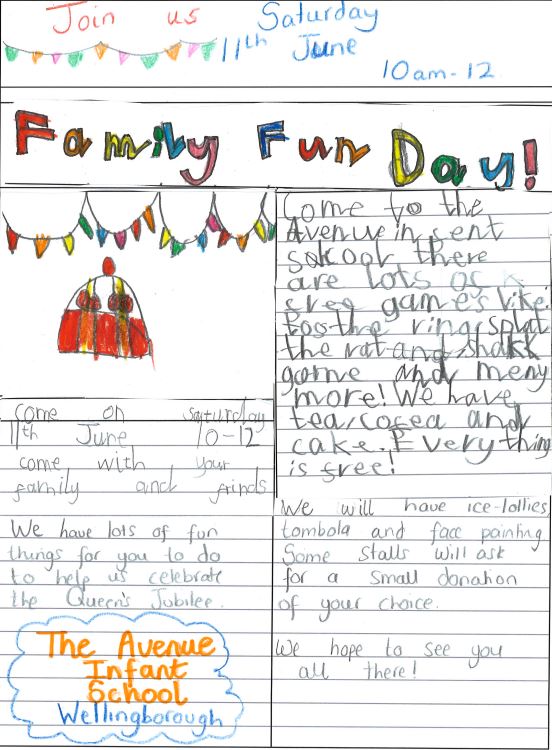 Join us Saturday
11th June
10am-12
Family Fun Day!
Come to the
Avenue in sent
sokool there
are lots os
sree games like:
tossthe ring, splat
the rat and shakk
game and meny
more! We have
tea/cofea and
cake. Everything
is sree!
come on saturday
11th June 10-12
come with your
family and frinds
We have lots of fun
things for you to do
to help us celebrate
the Queen's Jubilee.
The Avenue
Infant
School
Wellingborough
We will have ice-lollies
tombola and face painting
Some stalls will ask
for a small donation
of your choice.
We hope to see you
all there!